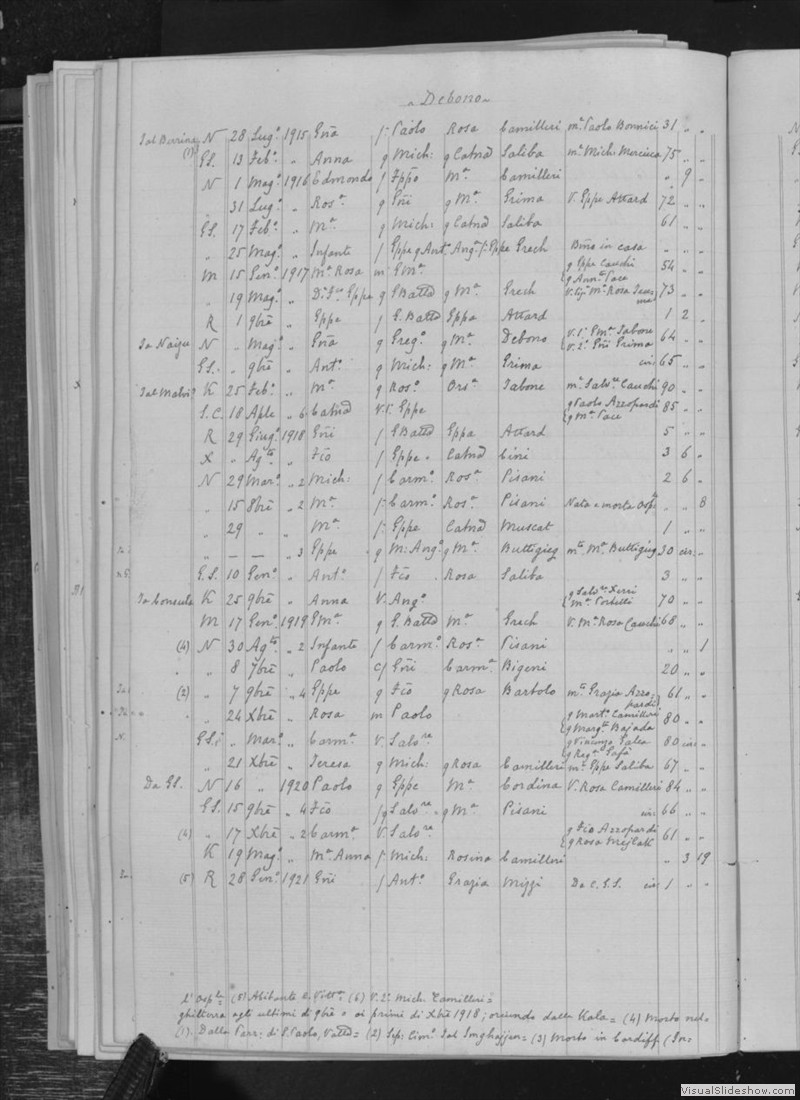 Debono
Sal Berrina N 28 Lug° 1915 Gña f: Paolo Rosa Camilleri mᵉ Paolo Bonnici 31 " "
(1) GS. 13 Feb° " Anna g Mich: g Catnd Saliba mᵉ Mich: 75 " "
N 1 Mag° 1916 Edmondo f Fpño Mª Camilleri " 9 "
" 31 Lug° " Rosª g Gñi g Mª Grima V. Gppe Attard 72 " "
GS. 17 Feb° " Mª g Mich: g Catnd Saliba 61 " "
" 25 Mag° " Infante f Gppe g Antº Angª f: Gppe Grech in casa " " "
M 15 Gen° 1917 Mª Rosa m GMª g Gppe Cauchi 54 " "
g Annª Pace
" 19 Mag° " Gppe g GBattd g Mª Grech Mª Rosa 73 " "
R 1 9bre " Gppe f GBattd Gppa Attard 1 2 "
Ta Naigu N " Mag° " Gña g Greg° g Mª Debono V. 1° Tabone 64 " "
V. 2° Gñi Grima
GS. " 9bre " Ant° g Mich: g Mª Grima cir: 65 " "
K 25 Feb° " Mª g Ros° Orsª Tabone mᵉ Salvʳᵉ Cauchi 90 " "
S.C. 18 Aple " 6 Catnd V. Gppe g Paolo Azzopardi 85 " "
g Mª Pace
R 29 Giug° 1918 Gñi f GBattd Gppa Attard 5 " "
X " Ag° " Fco f Gppe Catnd Cini 3 6 "
N 29 Mar° " 2 Mich: f Carm° Rosª Pisani 2 6 "
" 15 8bre " 2 Mª f: Carm° Rosª Pisani Nata e morta " " 8
" 29 " " Mª f: Gppe Catnd Muscat 1 " "
" — — " 3 Gppe g M: Ang° g Mª Buttigieg mᵉ Mª Buttigieg 30 cir: "
GS. 10 Gen° " Ant° f Fco Rosa Saliba 3 " "
Ta Consula K 25 9bre " Anna V. Ang° g Salvʳᵉ Xerri 70 " "
g Mª
M 17 Gen° 1919 GMª g GBattd Mª Grech V. Mª Rosa Cauchi 68 " "
(4) N 30 Ag° " 2 Infante f Carm° Rosª Pisani " " 1
" 8 7bre " Paolo c/ Gñi Carmª Bigeni 20 " "
(2) " 7 9bre " 4 Gppe g Fco g Rosa Bartolo mᵉ Grazia Azzo- 61 " "
pardi
" 24 Xbre " Rosa m Paolo g Mart° Camilleri 80 " "
g Margª Bajada
GS. " Mar° " Carmª V. Salvʳᵉ g Vincenza Galea 80 cir: "
g
" 21 Xbre " Teresa g Mich: g Rosa Camilleri mᵉ Gppe Saliba 67 " "
Da GS. N 16 " 1920 Paolo g Gppe Mª Cordina V. Rosa Camilleri 84 " "
GS. 15 9bre " 4 Fco g Salvʳᵉ g Mª Pisani cir: 66 " "
(4) " 17 Xbre " 2 Carmª V. Salvʳᵉ g Fco Azzopardi 61 " "
g Rosa Mejlak
K 19 Mag° " Mª Anna f: Mich: Rosina Camilleri " 3 19
(5) R 28 Gin° 1921 Gñi f Ant° Grazia Mizzi Da C.G.S. cir: 1 " "
l'Osple = (5) Abitante a Vittª (6) V. 2° Mich: Camilleri =
ghilterra agli ultimi di 9bre o ai primi di Xbre 1918; oriundo dalla Kala = (4) Morto nel-
(1) Dalla Parr: di S. Paolo, Vallᵃ = (2) Sep: Cim° = (3) Morto in Cardiff (In=
VisualSlideshow.com